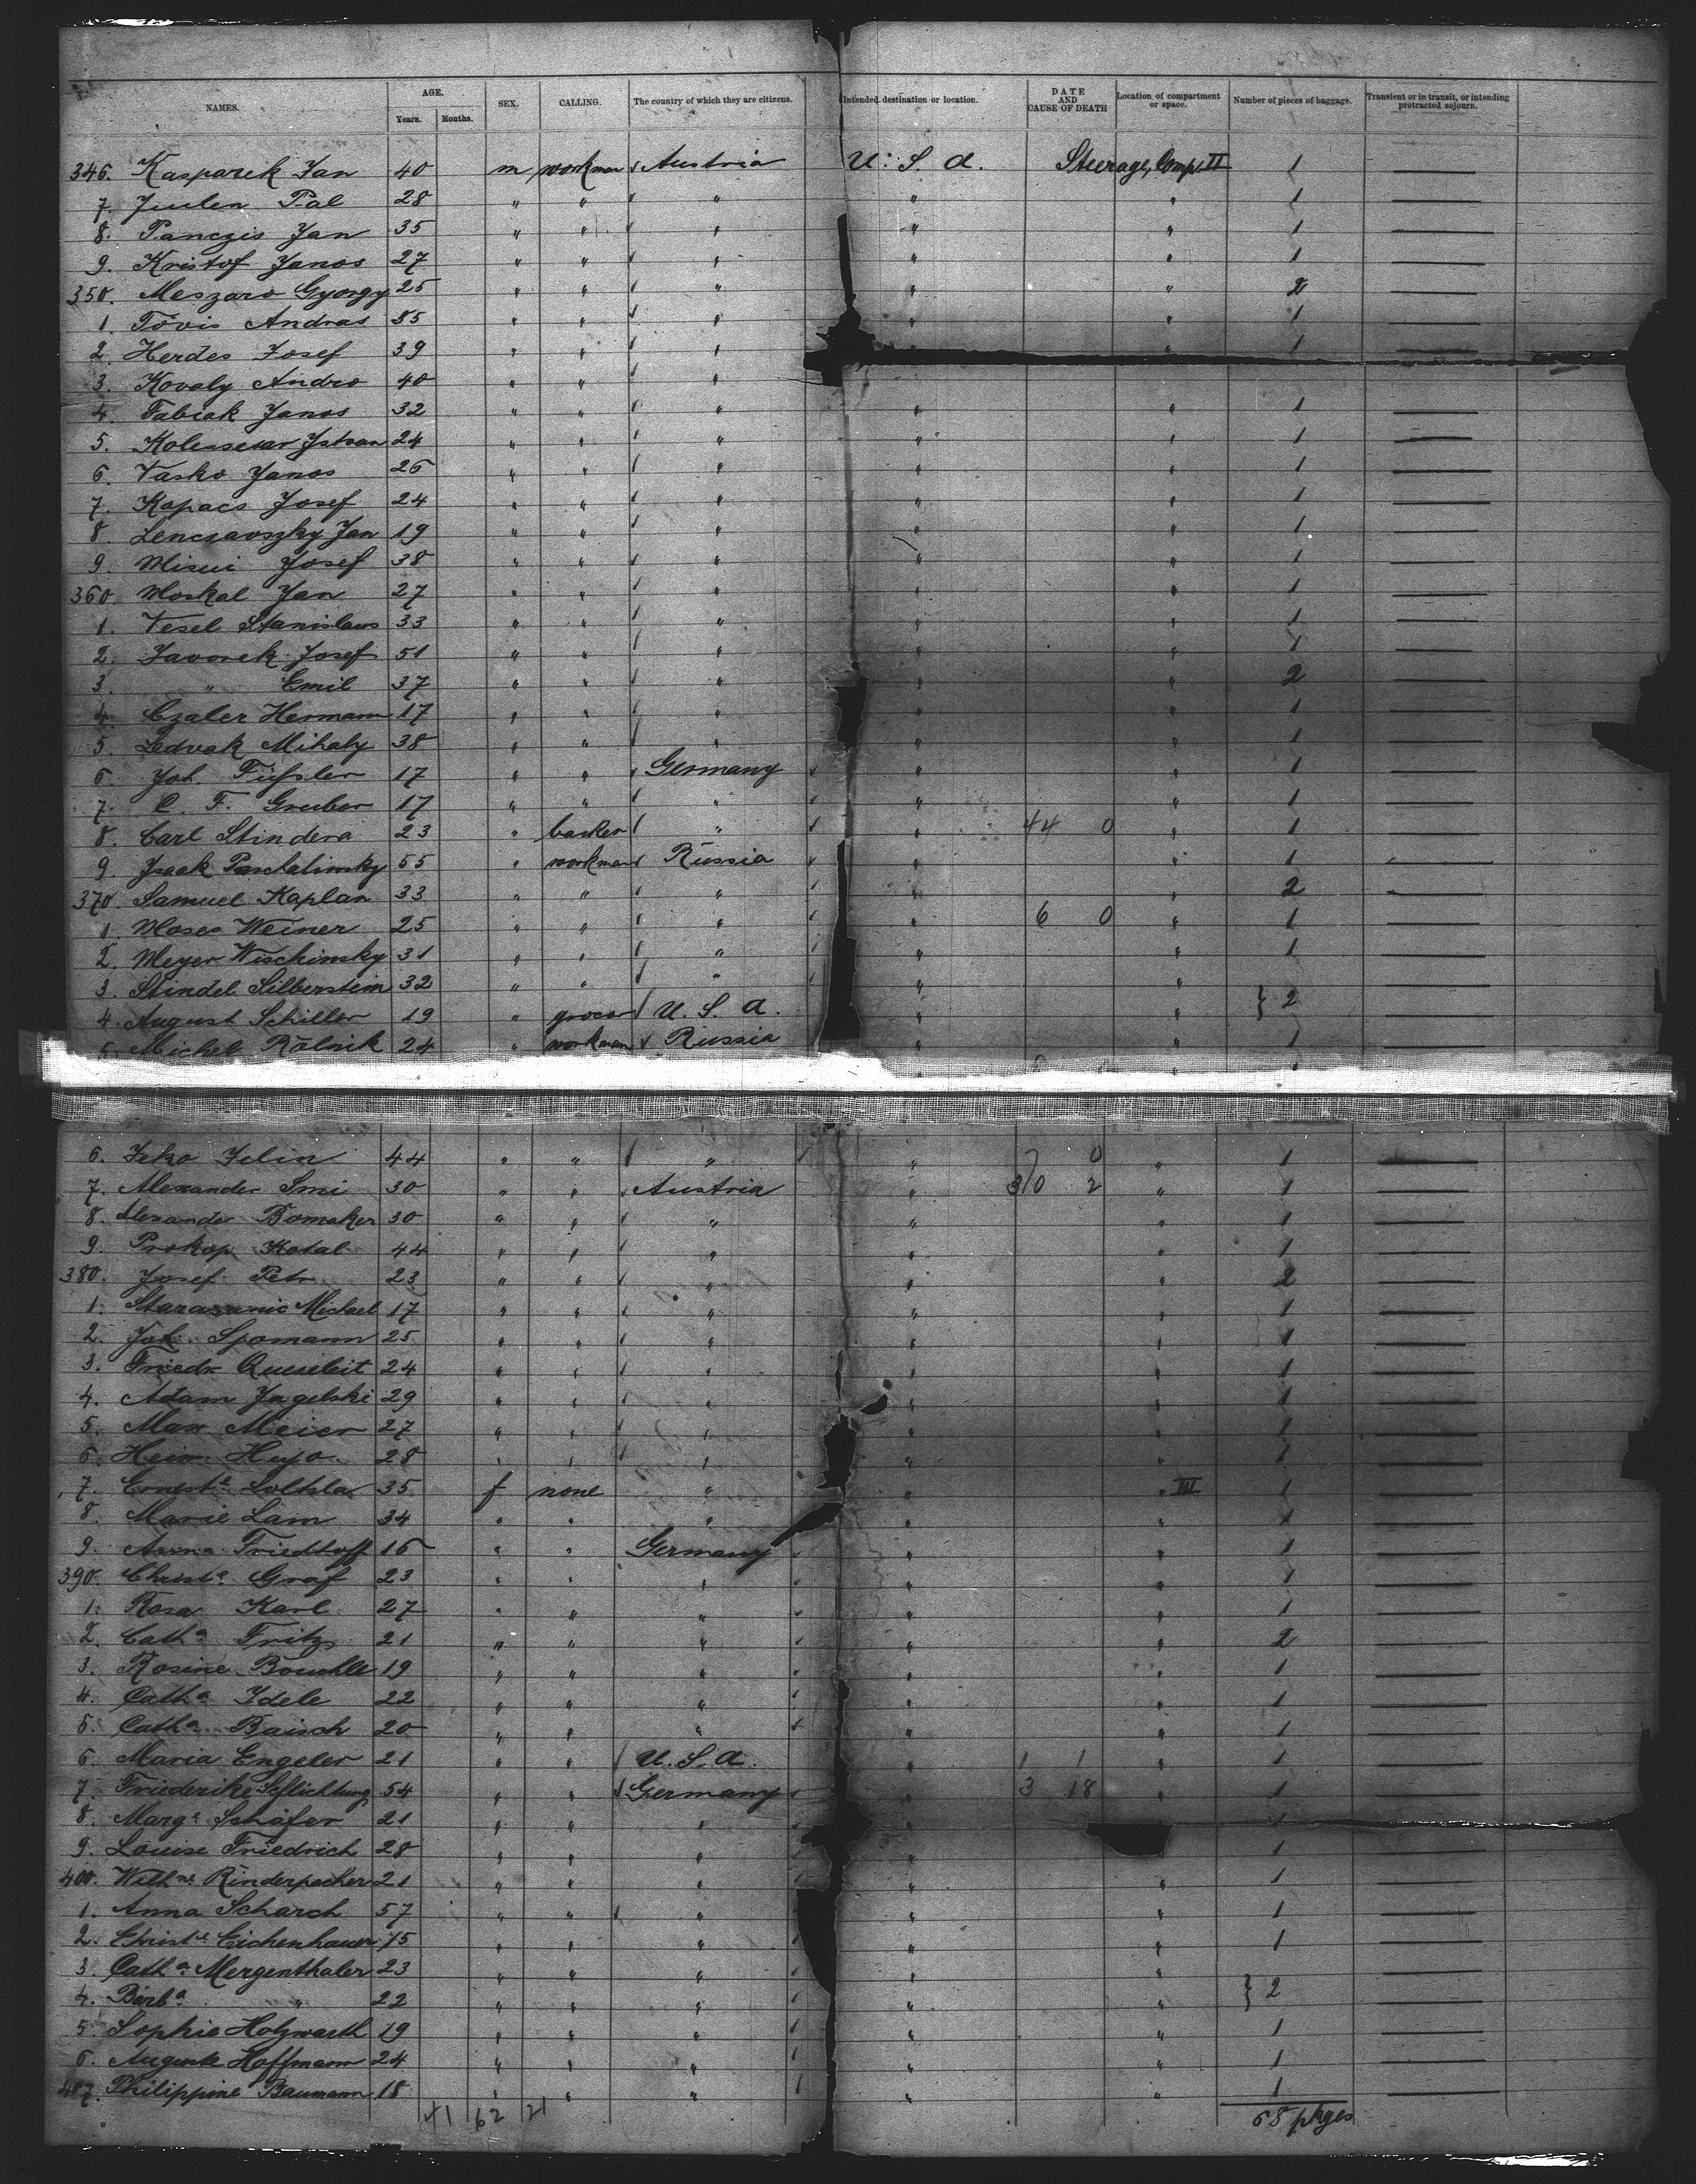 NAMES. AGE. SEX. CALLING. The country of which they are citizens. Intended destination or location. DATE AND CAUSE OF DEATH Location of compartment or space. Number of pieces of baggage. Transient or in transit, or intending protracted sojourn.
Years. Months.
346. Kasparek Jan 40 m workman Austria U. S. A. Steerage, Comp. II 1
7. Pal 28 " " " " " 1
8. Panczis Jan 35 " " " " " 1
9. Kristof Janos 27 " " " " " 1
350. Meszaro Gyorgy 25 " " " " " 2
1. Tövis Andras 35 " " " " " 1
2. Herdes Josef 39 " " " " 1
3. Kovaly Andro 40 " " "
4. Fabiak Janos 32 " " " " " 1
5. Istvan 24 " " " " " 1
6. Vasko Janos 26 " " " " " 1
7. Kopacs Josef 24 " " " " " 1
8. Jan 19 " " " " " 1
9. Josef 38 " " " " " 1
360. Moskal Jan 27 " " " " " 1
1. Vesel Stanislaus 33 " " " " " 1
2. Javorek Josef 51 " " " " " 1
3. " Emil 37 " " " " " 2
4. Czaler Hermann 17 " " " " " 1
5. Ledvak Mihaly 38 " " " " " 1
6. Joh. Füssler 17 " " Germany " " 1
7. C. F. Gruber 17 " " " " " 1
8. Carl Stindera 23 " backer " " 44 0 " 1
9. Isaak Paschalinsky 55 " workman Russia " " 1
370. Samuel Kaplan 33 " " " " " 2
1. Moses Weiner 25 " " " " 6 0 " 1
2. Meyer Wischinsky 31 " " " " " 1
3. Stindel Silberstein 32 " " " " " } 2
4. August Schiller 19 " grocer U. S. A. " "
5. Michel Rolnik 24 " workman Russia " " 1
6. Jeko Jelin 44 " " " " 0 " 1
7. Alexander Smi 30 " " Austria " 30 2 " 1
8. Alexander Bomaker 30 " " " " " 1
9. Prokop Kotal 44 " " " " " 1
380. Josef Petr 23 " " " " " 2
1. Michael 17 " " " " " 1
2. Joh. Spomann 25 " " " " " 1
3. Friedr. Queseleit 24 " " " " " 1
4. Adam Jagelski 29 " " " " " 1
5. Max Meier 27 " " " " " 1
6. Heinr. 28 " " " " " 1
7. Ernest.e 35 f none " " " III 1
8. Marie Lam 34 " " " " " 1
9. Anna Friedhoff 16 " " Germany " " 1
390. Christ.e Graf 23 " " " " " 1
1. Rosa Karl 27 " " " " " 1
2. Cath.a Fritz 21 " " " " " 2
3. Rosine 19 " " " " " 1
4. Cath.a Idele 22 " " " " " 1
5. Cath.a Baisch 20 " " " " " 1
6. Maria Engeler 21 " " U. S. A. " 1 1 " 1
7. Friederike 54 " " Germany " 3 18 " 1
8. Marg.e Schäfer 21 " " " " 1
9. Louise Friedrich 28 " " " " 1
400. Wilh.ne Rinderpacher 21 " " " " " 1
1. Anna Scharch 57 " " " " " 1
2. Christ.e Eichenhauer 15 " " " " " 1
3. Cath.a Mergenthaler 23 " " " " " } 2
4. Barb.a " 22 " " " " "
5. Sophie Holzwarth 19 " " " " " 1
6. Auguste Hoffmann 24 " " " " " 1
407. Philippine Baumann 18 " " " " " 1
41 62 21 68 pkges